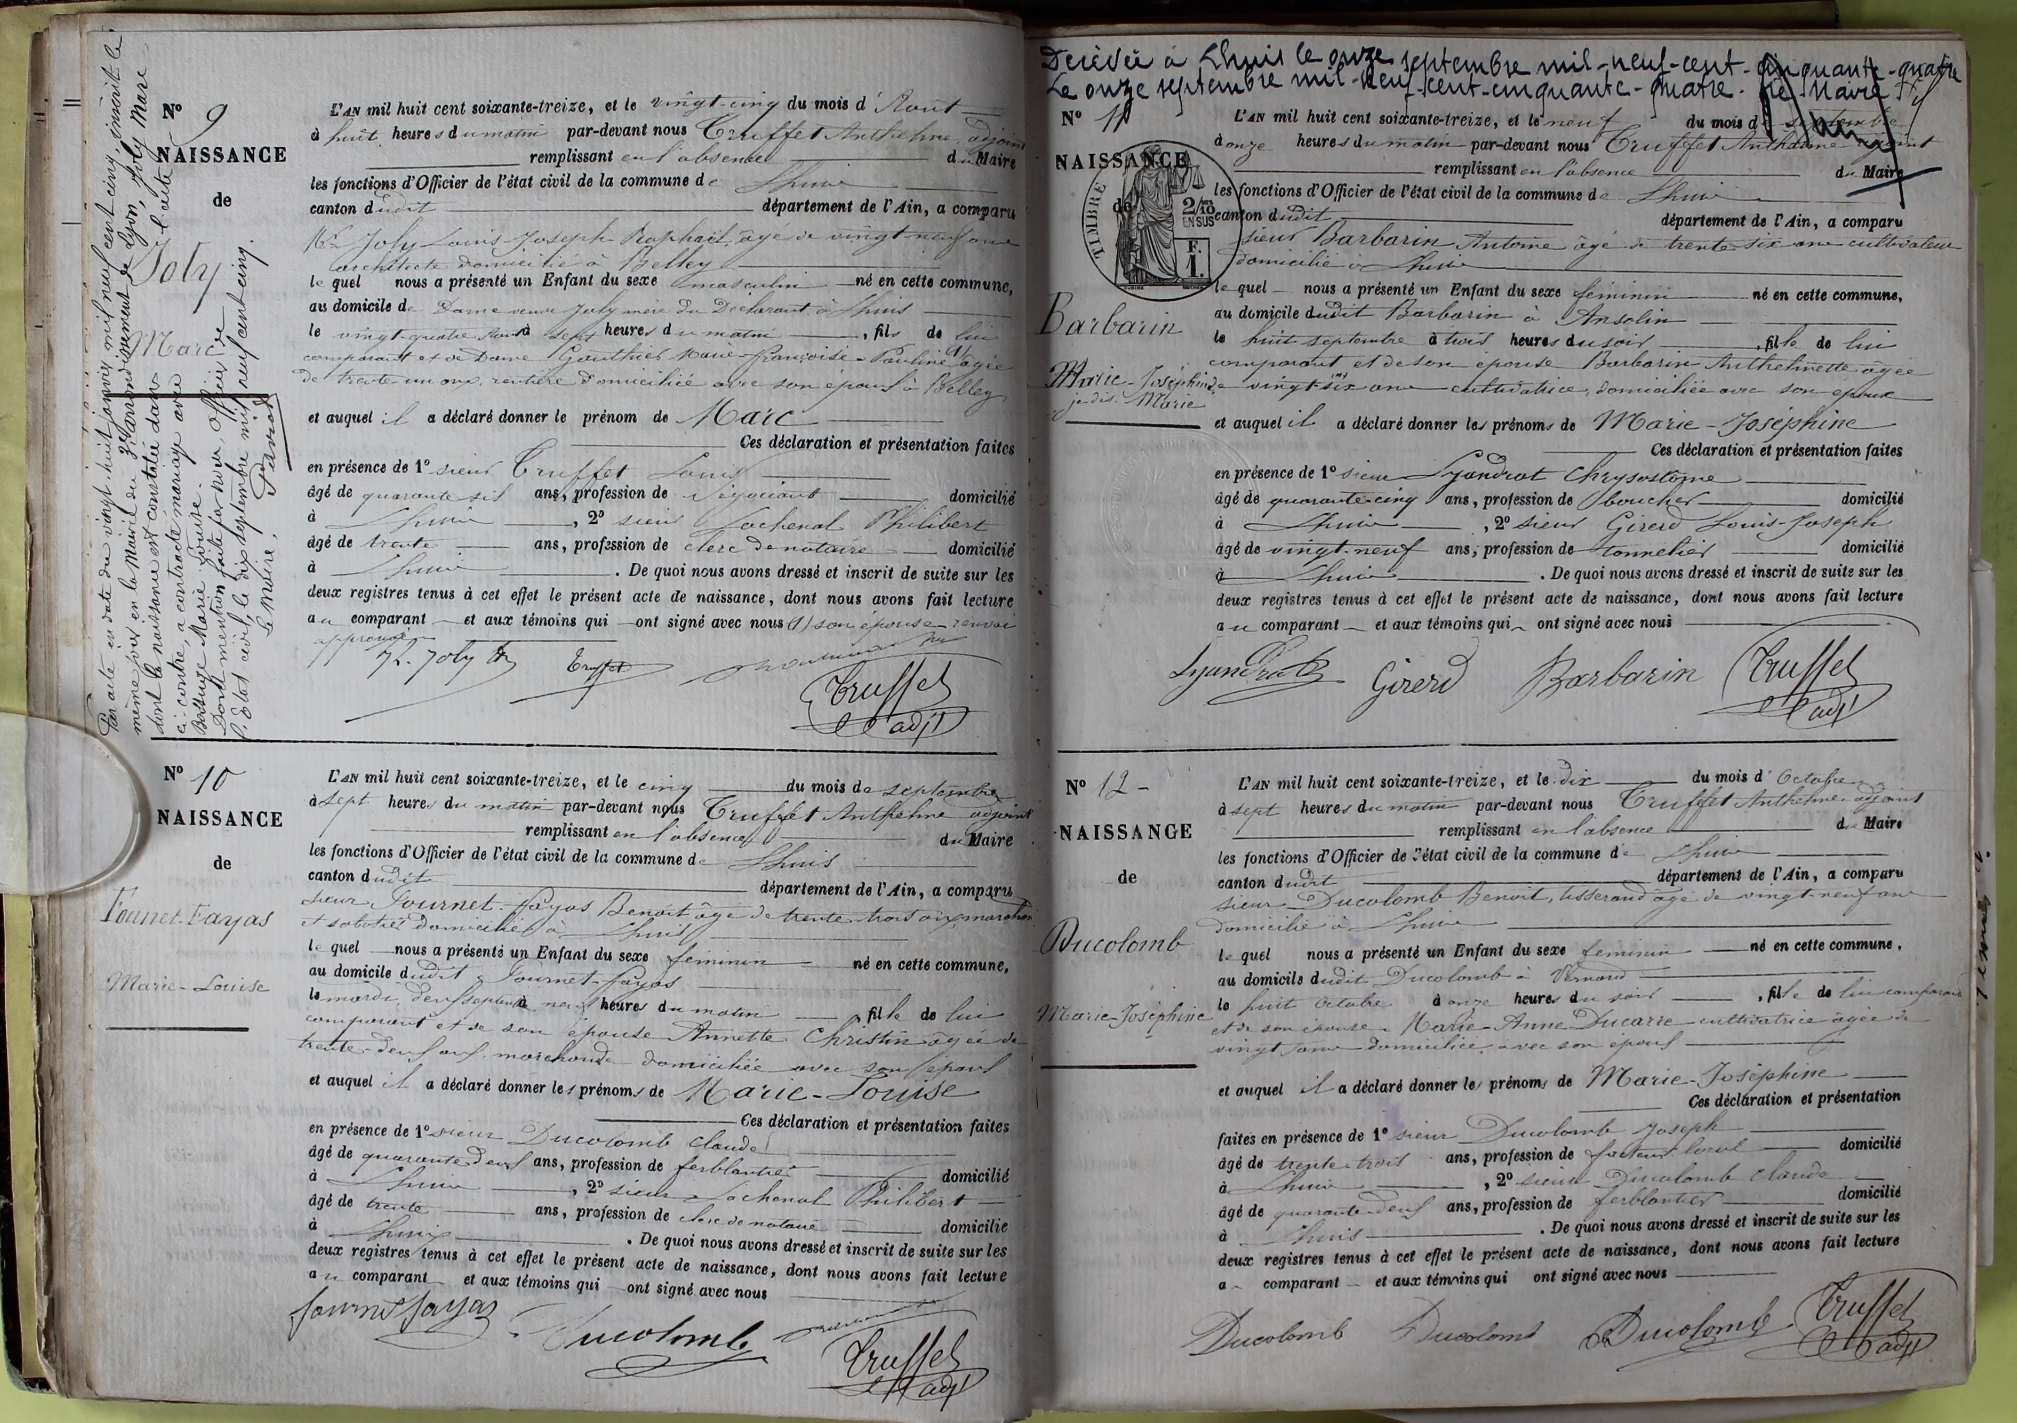 Par acte en date du vingt-huit janvier mil neuf cent cinq, inscrit le
même jour en la Mairie du 3e arrondissement de Lyon, Joly Marc
dont la naissance est constatée dans l'acte
ci-contre, a contracté mariage avec
Marie Louise.
Dont mention faite par nous, officier de
l'Etat civil, le dix septembre mil neuf cent cinq.
Le Maire,
No 9
NAISSANCE
de
Joly
Marc
L'AN mil huit cent soixante-treize, et le vingt-cinq du mois d'Août
à huit heures du matin par-devant nous Truffet Anthelme adjoint
remplissant en l'absence du Maire
les fonctions d'Officier de l'état civil de la commune de Lhuis
canton dudit département de l'Ain, a comparu
Mr Joly Louis Joseph Raphaël, âgé de vingt-neuf ans
architecte domicilié à Belley
le quel nous a présenté un Enfant du sexe masculin né en cette commune,
au domicile de Dame veuve Joly mère du Déclarant à Lhuis
le vingt-quatre Août à sept heures du matin, fils de lui
comparant et de Dame Gauthier Marie-Françoise-Pauline (1) âgée
de trente-un ans, rentière domiciliée avec son époux à Belley
et auquel il a déclaré donner le prénom de Marc
Ces déclaration et présentation faites
en présence de 1º sieur Truffet Louis
âgé de quarante six ans, profession de Négociant domicilié
à Lhuis, 2º sieur Lachenal Philibert
âgé de trente ans, profession de clerc de notaire domicilié
à Lhuis. De quoi nous avons dressé et inscrit de suite sur les
deux registres tenus à cet effet le présent acte de naissance, dont nous avons fait lecture
au comparant et aux témoins qui ont signé avec nous (1) son épouse renvoi
approuvé
Joly
Truffet
Truffet
adjt
No 10
NAISSANCE
de
Fournet-Fayas
Marie-Louise
L'AN mil huit cent soixante-treize, et le cinq du mois de septembre
à sept heures du matin par-devant nous Truffet Anthelme adjoint
remplissant en l'absence du Maire
les fonctions d'Officier de l'état civil de la commune de Lhuis
canton dudit département de l'Ain, a comparu
sieur Fournet-Fayas Benoît âgé de trente-trois ans, marchand
et sabotier domicilié à Lhuis
le quel nous a présenté un Enfant du sexe féminin né en cette commune,
au domicile dudit Fournet-Fayas
le mardi, deux septembre à neuf heures du matin, fille de lui
comparant et de son épouse Annette Christin âgée de
trente-deux ans, marchande domiciliée avec son époux
et auquel il a déclaré donner les prénoms de Marie-Louise
Ces déclaration et présentation faites
en présence de 1º sieur Ducolomb Claude
âgé de quarante deux ans, profession de ferblantier domicilié
à Lhuis, 2º sieur Lachenal Philibert
âgé de trente ans, profession de clerc de notaire domicilié
à Lhuis. De quoi nous avons dressé et inscrit de suite sur les
deux registres tenus à cet effet le présent acte de naissance, dont nous avons fait lecture
au comparant et aux témoins qui ont signé avec nous
fournet fayas
Ducolomb
Truffet
adjt
Décédée à Lhuis le onze septembre mil-neuf-cent-cinquante-quatre
Le onze septembre mil-neuf-cent-cinquante-quatre. Le Maire
No 11
NAISSANCE
de
TIMBRE
2/10
EN SUS
F.
1.
Barbarin
Marie-Joséphine
je dis. Marie
L'AN mil huit cent soixante-treize, et le neuf du mois de septembre
à onze heures du matin par-devant nous Truffet Anthelme adjoint
remplissant en l'absence du Maire
les fonctions d'Officier de l'état civil de la commune de Lhuis
canton dudit département de l'Ain, a comparu
sieur Barbarin Antoine âgé de trente-six ans cultivateur
domicilié à Lhuis
le quel nous a présenté un Enfant du sexe féminin né en cette commune,
au domicile dudit Barbarin à Ansolin
le huit septembre à trois heures du soir, fille de lui
comparant et de son épouse Barbarin Anthelmette âgée
de vingt-six ans cultivatrice, domiciliée avec son époux
et auquel il a déclaré donner les prénoms de Marie-Joséphine
Ces déclaration et présentation faites
en présence de 1º sieur Lyandrat Chrysostome
âgé de quarante-cinq ans, profession de boucher domicilié
à Lhuis, 2º sieur Girerd Louis-Joseph
âgé de vingt-neuf ans, profession de tonnelier domicilié
à Lhuis. De quoi nous avons dressé et inscrit de suite sur les
deux registres tenus à cet effet le présent acte de naissance, dont nous avons fait lecture
au comparant et aux témoins qui ont signé avec nous
Lyandrat
Girerd
Barbarin
Truffet
adjt
No 12
NAISSANCE
de
Ducolomb
Marie-Joséphine
L'AN mil huit cent soixante-treize, et le dix du mois d'Octobre
à sept heures du matin par-devant nous Truffet Anthelme adjoint
remplissant en l'absence du Maire
les fonctions d'Officier de l'état civil de la commune de Lhuis
canton dudit département de l'Ain, a comparu
sieur Ducolomb Benoît, tisserand âgé de vingt-neuf ans
domicilié à Lhuis
le quel nous a présenté un Enfant du sexe féminin né en cette commune,
au domicile dudit Ducolomb à
le huit Octobre à onze heures du soir, fille de lui comparant
et de son épouse Marie-Anne Ducarre cultivatrice âgée de
vingt ans domiciliée avec son époux
et auquel il a déclaré donner les prénoms de Marie-Joséphine
Ces déclaration et présentation
faites en présence de 1º sieur Ducolomb Joseph
âgé de trente-trois ans, profession de facteur local domicilié
à Lhuis, 2º sieur Ducolomb Claude
âgé de quarante-deux ans, profession de ferblantier domicilié
à Lhuis. De quoi nous avons dressé et inscrit de suite sur les
deux registres tenus à cet effet le présent acte de naissance, dont nous avons fait lecture
au comparant et aux témoins qui ont signé avec nous
Ducolomb
Ducolomb
Ducolomb
Truffet
adjt